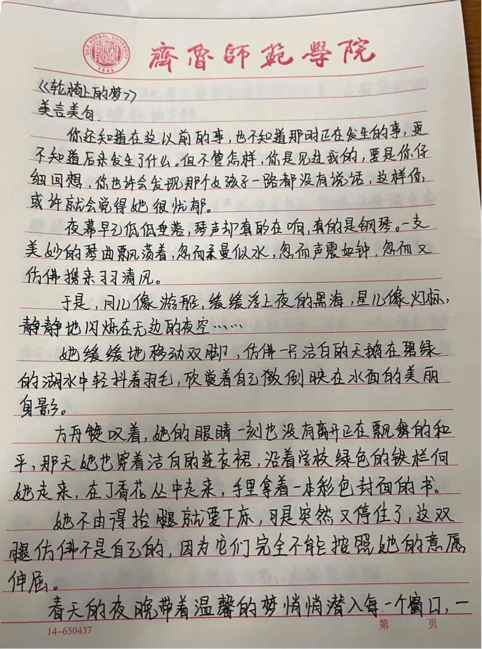 齊魯師範學院
《轮椅上的梦》
美言美句
你还知道在这以前的事,也不知道那时正在发生的事,更
不知道后来发生了什么。但不管怎样,你是见过我的,要是你仔
细回想,你也许会发现那个女孩子一路都没有说话,这样你
或许就会觉得她很忧郁。
夜幕早已低低垂落,琴声却真的在响,真的是钢琴。一支
美妙的琴曲飘荡着,忽而柔曼似水,忽而声震如钟,忽而又
仿佛携来习习清风。
于是,月儿像游船,缓缓浮上夜的黑海,星儿像灯标,
静静地闪烁在无边的夜空……
她缓缓地移动双脚,仿佛一片洁白的天鹅在碧绿
的湖水中轻抖着羽毛,欣赏着自己倒映在水面的美丽
身影。
方丹赞叹着,她的眼睛一刻也没有离开正在飘舞的和
平,那天她也穿着洁白的连衣裙,沿着学校绿色的铁栏向
她走来,在丁香花丛中走来,手里拿着一本彩色封面的书。
她不由得抬腿就要下床,可是突然又停住了,这双
腿仿佛不是自己的,因为它们完全不能按照她的意愿
伸屈。
春天的夜晚带着温馨的梦悄悄潜入每一个窗口,一
14-650437
第 页